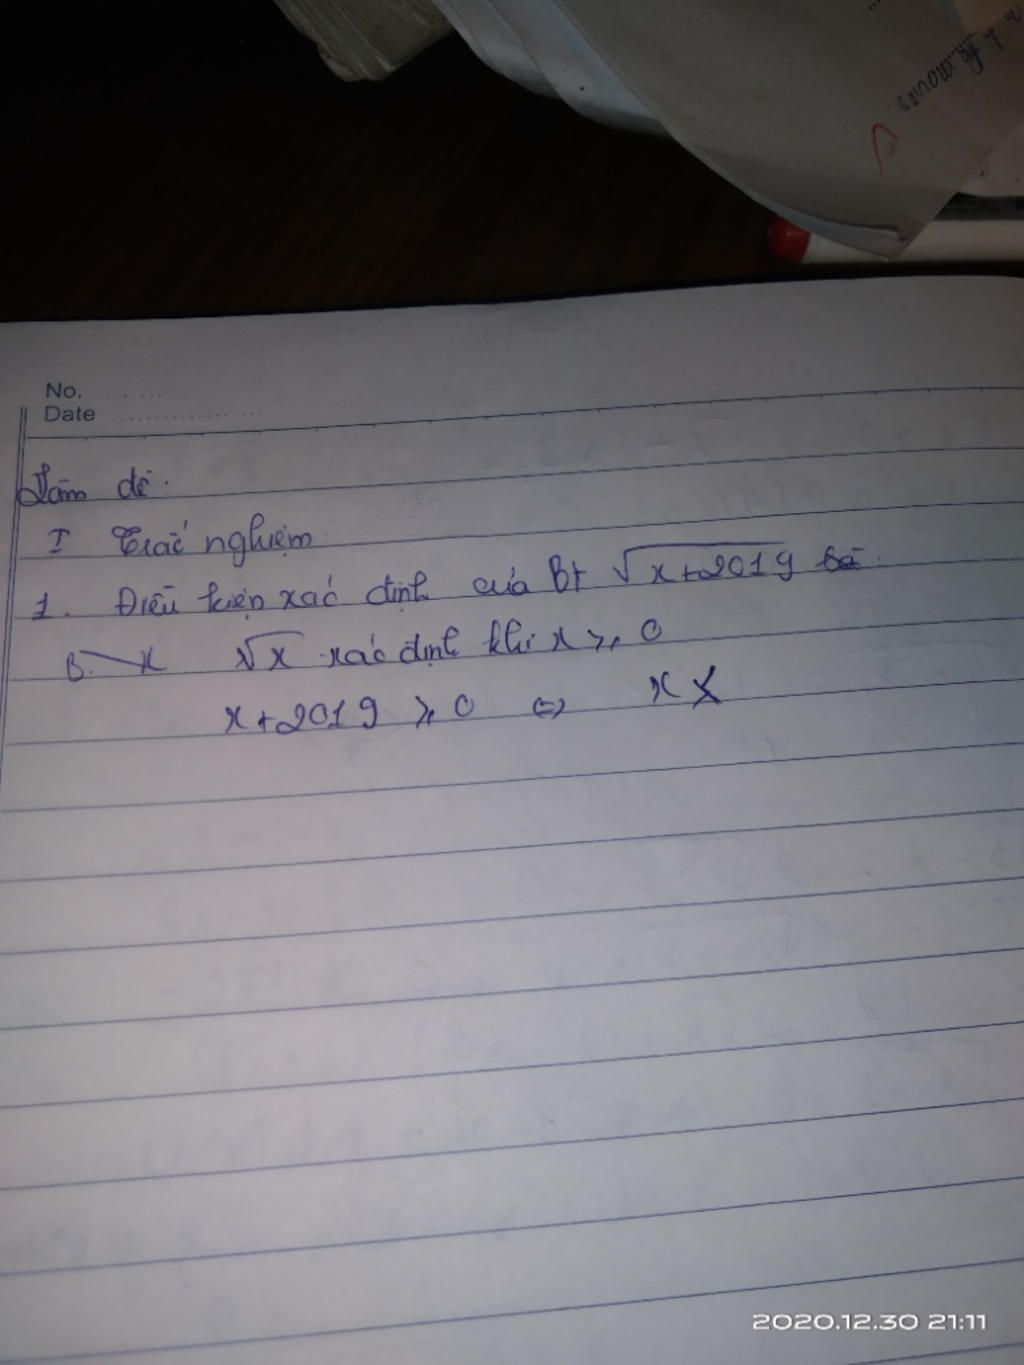 No.
Date
Làm đề.
I Trắc nghiệm
1. Điều kiện xác định của Bt √x+2019 là:
B. x √x xác định khi x ≥ 0
x+2019 ≥ 0 ⇔ x
2020.12.30 21:11